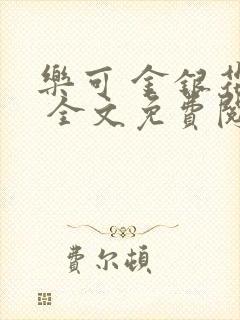 樂可 金銀花
全文免費閱
費尔頓